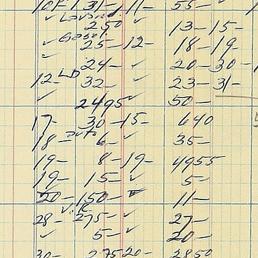 10 31- 11- 55-
250 13-15-
25- 12- 18-19-
24- 20-30-
12- LD 32 23-31-
2495 50-
17- 30-15- 640
18- auto 6- 35-
19- 8-19- 4955
19- 15- 5-
20- 150- 11-
28- 275- 27-
5- 20-
30- 275 20- 2850